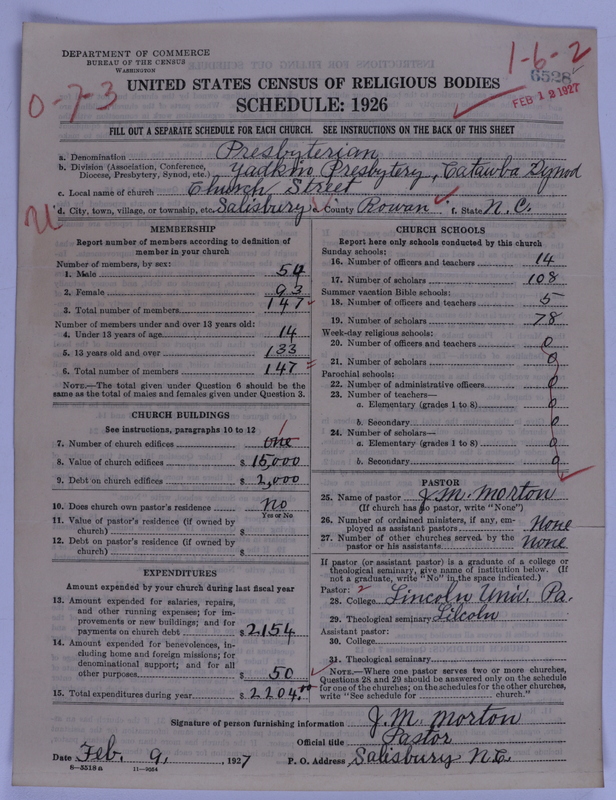 DEPARTMENT OF COMMERCE
BUREAU OF THE CENSUS
WASHINGTON
1-6-2
6528
FEB 12 1927
0-7-3
UNITED STATES CENSUS OF RELIGIOUS BODIES
SCHEDULE: 1926
FILL OUT A SEPARATE SCHEDULE FOR EACH CHURCH. SEE INSTRUCTIONS ON THE BACK OF THIS SHEET
a. Denomination Presbyterian
b. Division (Association, Conference, Diocese, Presbytery, Synod, etc.) Yadkin Presbytery, Catawba Synod
c. Local name of church Church Street
d. City, town, village, or township, etc. Salisbury e. County Rowan f. State N.C.
MEMBERSHIP
Report number of members according to definition of
member in your church
Number of members, by sex:
1. Male 54
2. Female 93
3. Total number of members 147
Number of members under and over 13 years old:
4. Under 13 years of age 14
5. 13 years old and over 133
6. Total number of members 147
NOTE.—The total given under Question 6 should be the
same as the total of males and females given under Question 3.
CHURCH BUILDINGS
See instructions, paragraphs 10 to 12
7. Number of church edifices one 1
8. Value of church edifices $ 15,000
9. Debt on church edifices $ 2,000
10. Does church own pastor's residence? no
Yes or No
11. Value of pastor's residence (if owned by
church) $
12. Debt on pastor's residence (if owned by
church) $
EXPENDITURES
Amount expended by your church during last fiscal year
13. Amount expended for salaries, repairs,
and other running expenses; for im-
provements or new buildings; and for
payments on church debt $ 2,154
14. Amount expended for benevolences, in-
cluding home and foreign missions; for
denominational support; and for all
other purposes $ 50
15. Total expenditures during year $ 2204.00
CHURCH SCHOOLS
Report here only schools conducted by this church
Sunday schools:
16. Number of officers and teachers 14
17. Number of scholars 108
Summer vacation Bible schools:
18. Number of officers and teachers 5
19. Number of scholars 78
Week-day religious schools:
20. Number of officers and teachers 0
21. Number of scholars 0
Parochial schools:
22. Number of administrative officers 0
23. Number of teachers—
a. Elementary (grades 1 to 8) 0
b. Secondary 0
24. Number of scholars—
a. Elementary (grades 1 to 8) 0
b. Secondary 0
PASTOR
25. Name of pastor J.M. Morton
(If church has no pastor, write "None")
26. Number of ordained ministers, if any, em-
ployed as assistant pastors None
27. Number of other churches served by the
pastor or his assistants None
If pastor (or assistant pastor) is a graduate of a college or
theological seminary, give name of institution below. (If
not a graduate, write "No" in the space indicated.)
Pastor:
28. College Lincoln Univ. Pa.
29. Theological seminary Lilcoln
Assistant pastor:
30. College
31. Theological seminary
NOTE.—Where one pastor serves two or more churches,
Questions 28 and 29 should be answered only on the schedule
for one of the churches; on the schedules for the other churches,
write "See schedule for church."
Signature of person furnishing information J.M. Morton
Official title Pastor
Date Feb. 9, 1927 P. O. Address Salisbury N.C.
8-5518 a 11-9054